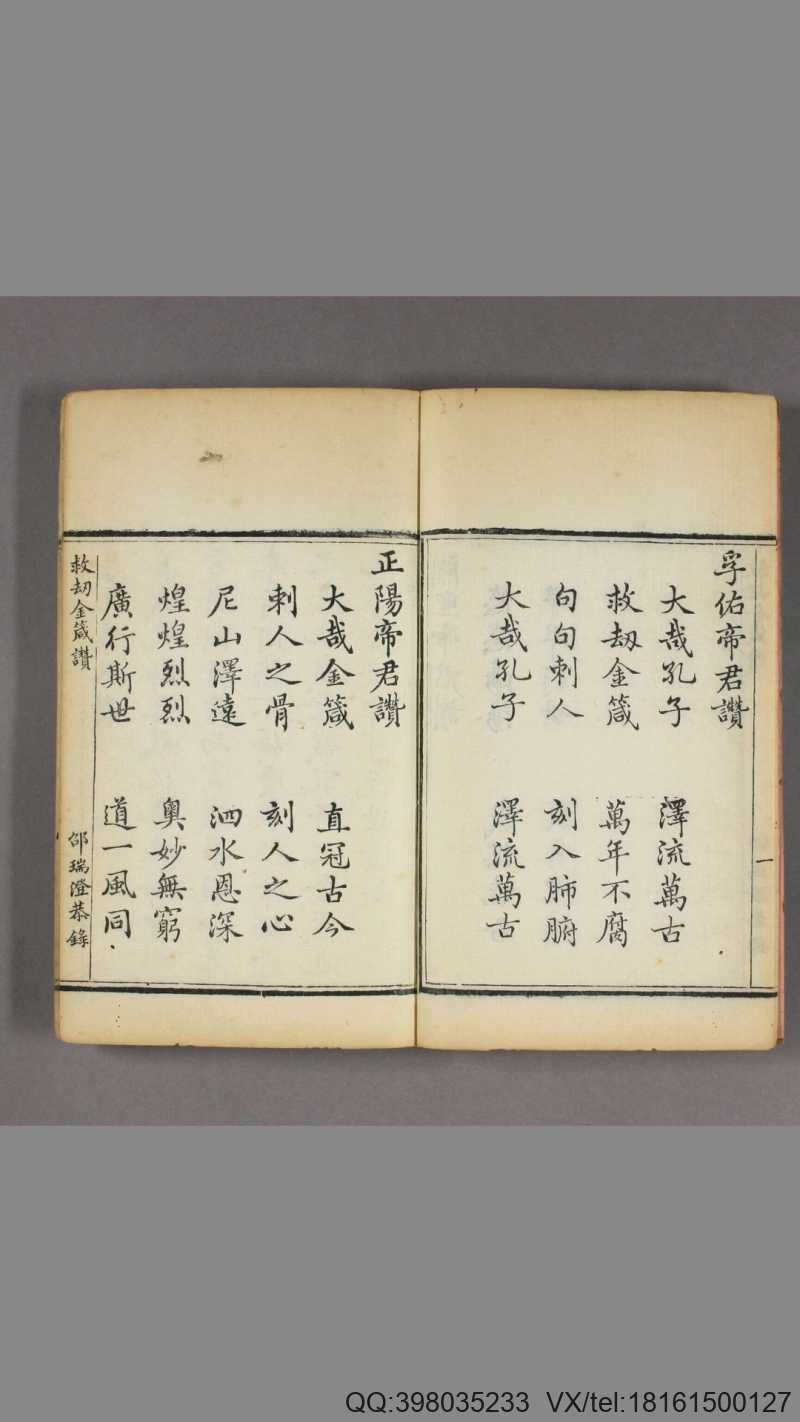 一
孚佑帝君讚
大哉孔子 澤流萬古
救劫金箴 萬年不腐
句句刺人 刻入肺腑
大哉孔子 澤流萬古
正陽帝君讚
大哉金箴 直冠古今
刺人之骨 刻人之心
尼山澤遠 泗水恩深
煌煌烈烈 奧妙無窮
廣行斯世 道一風同
救刧金箴讚
邵瑞澄恭錄
QQ:398035233 VX/tel:18161500127